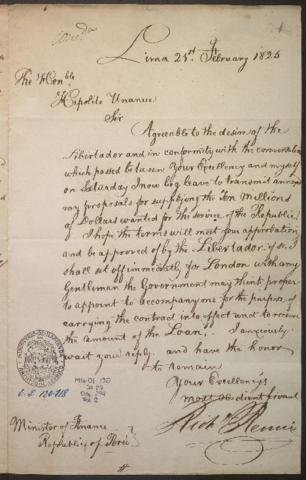 Lima 25th February 1825
The Honble
Hipolito Unanue
Sir
Agreeable to the desire of the
Libertador and in conformity with the conversation
which passed between Your Excellency and myself
on Saturday I now beg leave to transmit annexed
my proposals for supplying the Ten Millions
of Dollars wanted for the service of the Republic
I hope the terms will meet your approbation
and be approved of by the Libertador if so I
shall set off immediately for London with any
Gentleman the Government may think proper
to appoint to accompany me for the purpose of
carrying the contract into effect and to receive
the amount of the Loan. I anxiously
wait your reply and have the honor
to remain
Your Excellency's
most obedient servant
Richd
Minister of Finance
Republic of Peru